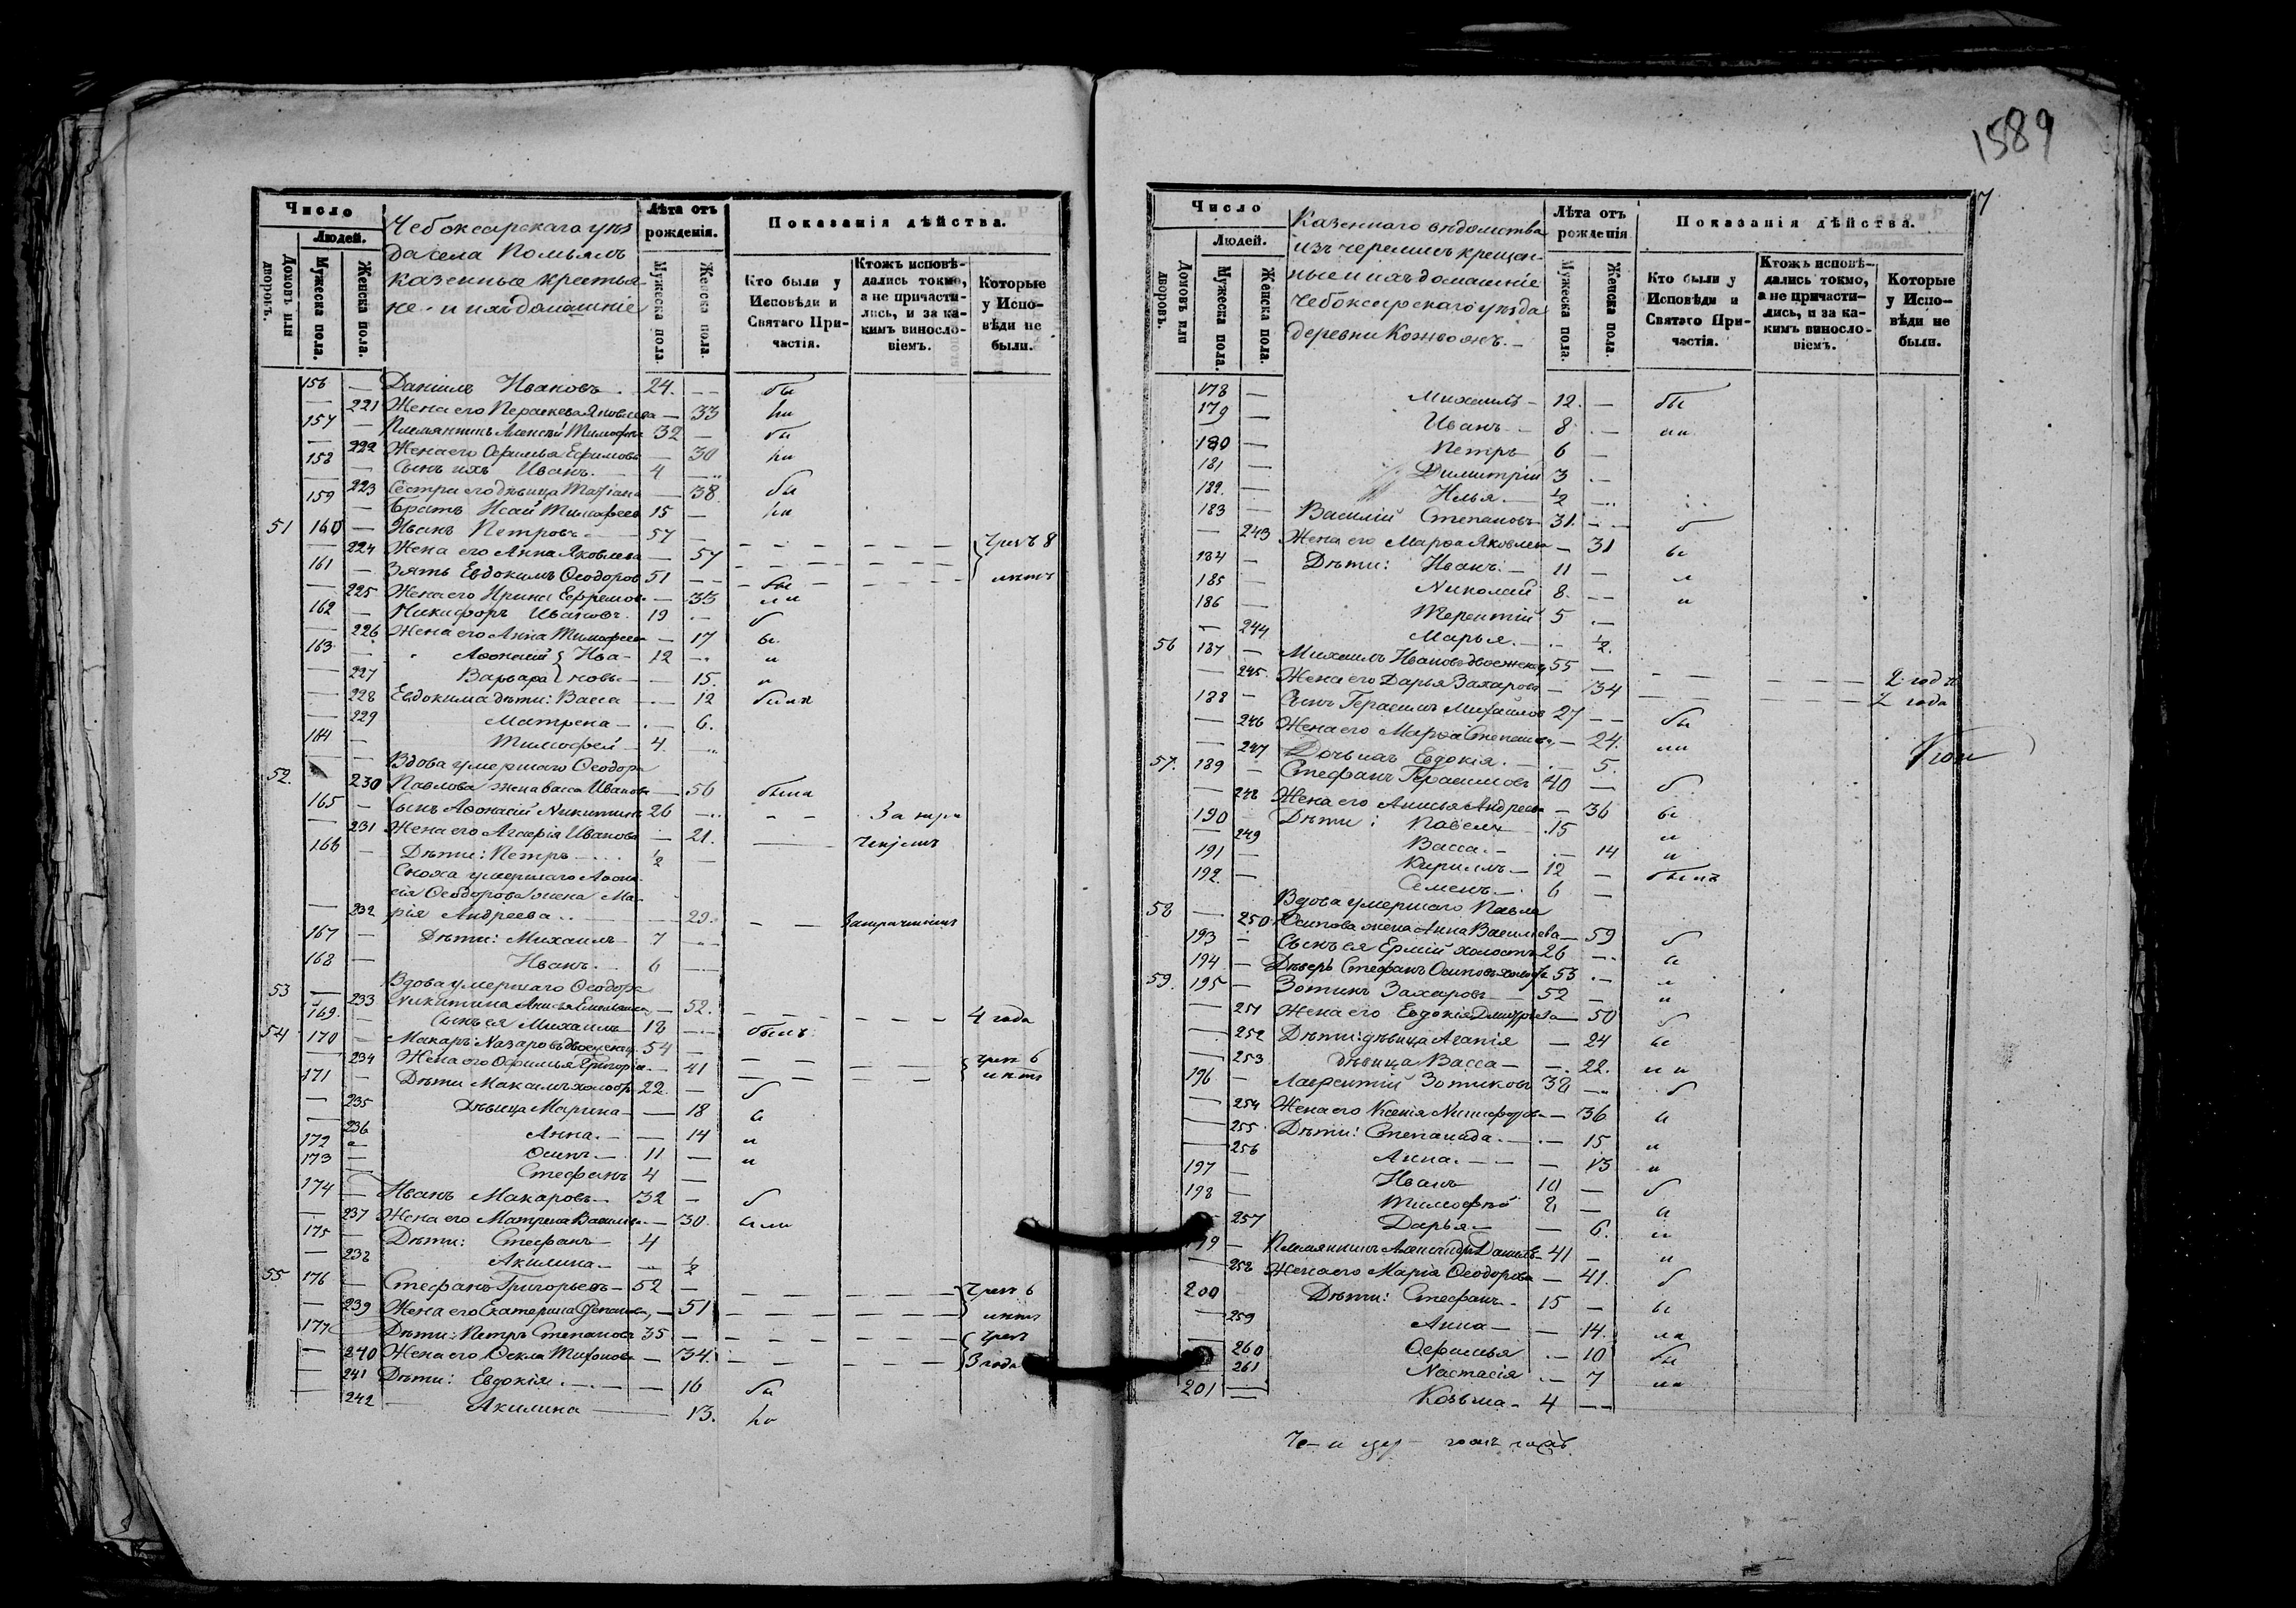 1589
7
Число
Людей.
Домовъ или дворовъ.
Мужеска пола.
Женска пола.
Чебоксарскаго уѣз
да села Помьялъ
казенные крестья-
не и ихъ домашніе
Лѣта отъ рожденія.
Мужеска пола.
Женска пола.
Показанія дѣйства.
Кто были у Исповѣди и Святаго Причастія.
Ктожъ исповѣдались токмо, а не причастились, и за какимъ винословіемъ.
Которые у Исповѣди не были.
156 — Даніилъ Ивановъ. 24. — бы
— 221 Жена его Пераскева Яковлева — 33 ли
157 — Племянникъ Алексѣй Тимофѣев 32 — бы
— 222 Жена его Офимья Ефимова — 30 ли
158 — Сынъ ихъ Иванъ. 4 —
— 223 Сестра его дѣвица Татіана — 38. бы
159 — Братъ Исай Тимофеев 15 — ли
51 160 — Иванъ Петровъ 57 — чрезъ 8
— 224 Жена его Анна Яковлева — 57 лѣтъ
161 — Зять Евдокимъ Ѳеодоров 51 — бы
— 225 Жена его Ирина Ефремов. — 33 ли
162 — Никифоръ Ивановъ. 19 — б
— 226 Жена его Анна Тимофеев — 17 ы
163 — Аѳонасій } Ива- 12 — л
— 227 Варвара } новы — 15. и
— 228 Евдокима дѣти: Васса — 12 была
— 229 Матрена — 6.
164 — Тимофей 4 —
Вдова умершаго Ѳеодора
52. — 230 Павлова жена Васса Иванова — 56 была
165 — Сынъ Аѳонасій Никитинъ 26 — За пре
— 231 Жена его Агафія Иванова — 21.
166 — Дѣти: Петръ ½ —
Сноха умершаго Аѳона-
сія Ѳеодорова жена Ма-
— 232 рія Андреева — 29.
167 — Дѣти: Михаилъ 7 —
168 — Иванъ. 6 —
Вдова умершаго Ѳеодора
53 — 233 Никитина Анисья Емельянова — 52. 4 года
169. — Сынъ ея Михаилъ 18 — былъ
54 170 — Макаръ Назаровъ двоежен. 54 — чрез 6
— 234 Жена его Офимья Григорьев — 41 лѣтъ
171 — Дѣти Максимъ холост 22. — б
— 235 Дѣвица Марина — 18 ы
— 236 Анна. — 14 л
172 — Осипъ 11 — и
173 — Стефанъ 4 —
174 — Иванъ Макаровъ 32 — б
— 237 Жена его Матрена Васильев. — 30. ыли
175 — Дѣти: Стефанъ 4
— 238 Акилина — ½
55 176 — Стефанъ Григорьевъ 52 — Чрез 6
— 239 Жена его Екатерина Степанова, — 51 лѣтъ
177 Дѣти: Петръ Степановъ 35 — Чрез
— 240 Жена его Ѳекла Тихонова — 34. 3 года
— 241 Дѣти: Евдокія — 16 бы
— 242 Акилина — 13. ли
Число
Людей.
Домовъ или дворовъ.
Мужеска пола.
Женска пола.
Казеннаго вѣдомства
изъ черемисъ крещен-
ные и ихъ домашніе
Чебоксарскаго уѣзда
деревни Кожвожъ.
Лѣта отъ рожденія
Мужеска пола.
Женска пола.
Показанія дѣйства.
Кто были у Исповѣди и Святаго Причастія.
Ктожъ исповѣдались токмо, а не причастились, и за какимъ винословіемъ.
Которые у Исповѣди не были.
178 — Михаилъ 12. — бы
179 — Иванъ 8 — ли
180 — Петръ 6 —
181 — Димитрій 3 —
182. — Илья. ½ —
183 — Василій Степановъ 31. — б
— 243 Жена его Марѳа Яковлева — 31 ы
184 — Дѣти: Иванъ. 11 — л
185 — Николай 8. — и
186 — Терентій 5 —
— 244 Марья. — ½.
56 187 — Михаилъ Ивановъ двоежен 55 — 2 года
— 245. Жена его Дарья Захарова — 34 2 года
188 — Сынъ Герасимъ Михайлов 27 — бы
— 246 Жена его Марѳа Степанов, — 24. ли
— 247 Дочь ихъ Евдокія. — 5.
57. 189 — Стефанъ Герасимовъ 40 — б
— 248 Жена его Анисья Андреева — 36 ы
190 — Дѣти: Павелъ 15 л
— 249 Васса. — 14 и
191 — Кириллъ 12 — былъ
192. — Семенъ. 6 —
Вдова умершаго Павла
58 — 250 Осипова жена Анна Васильева — 59 б
193 — Сынъ ея Ермій холостъ 26 — ы
194 — Дѣверь Стефанъ Осиповъ холост 53 — л
59. 195 — Зотикъ Захаровъ 52 — и
— 251 Жена его Евдокія Дмитріева — 50 б
— 252 Дѣти: дѣвица Агапія — 24 ы
— 253 дѣвица Васса — 22. ли
196 — Лаврентій Зотиковъ 38 — б
— 254 Жена его Ксенія Никифоров — 36 ы
— 255. Дѣти: Степанида. — 15 л
— 256 Анна. — 13 и
197 — Иванъ 10 — б
198 — Тимофѣй 8 — ы
257 Дарья — 6. л
199 — Племянникъ Александръ Данилов 41 — и
— 258 Жена его Марія Ѳеодорова — 41. б
200 Дѣти: Стефанъ. 15 — ы
— 259 Анна — 14. ли
— 260 Офимья — 10 бы
— 261 Настасія — 7 ли
201 — Козьма 4 —